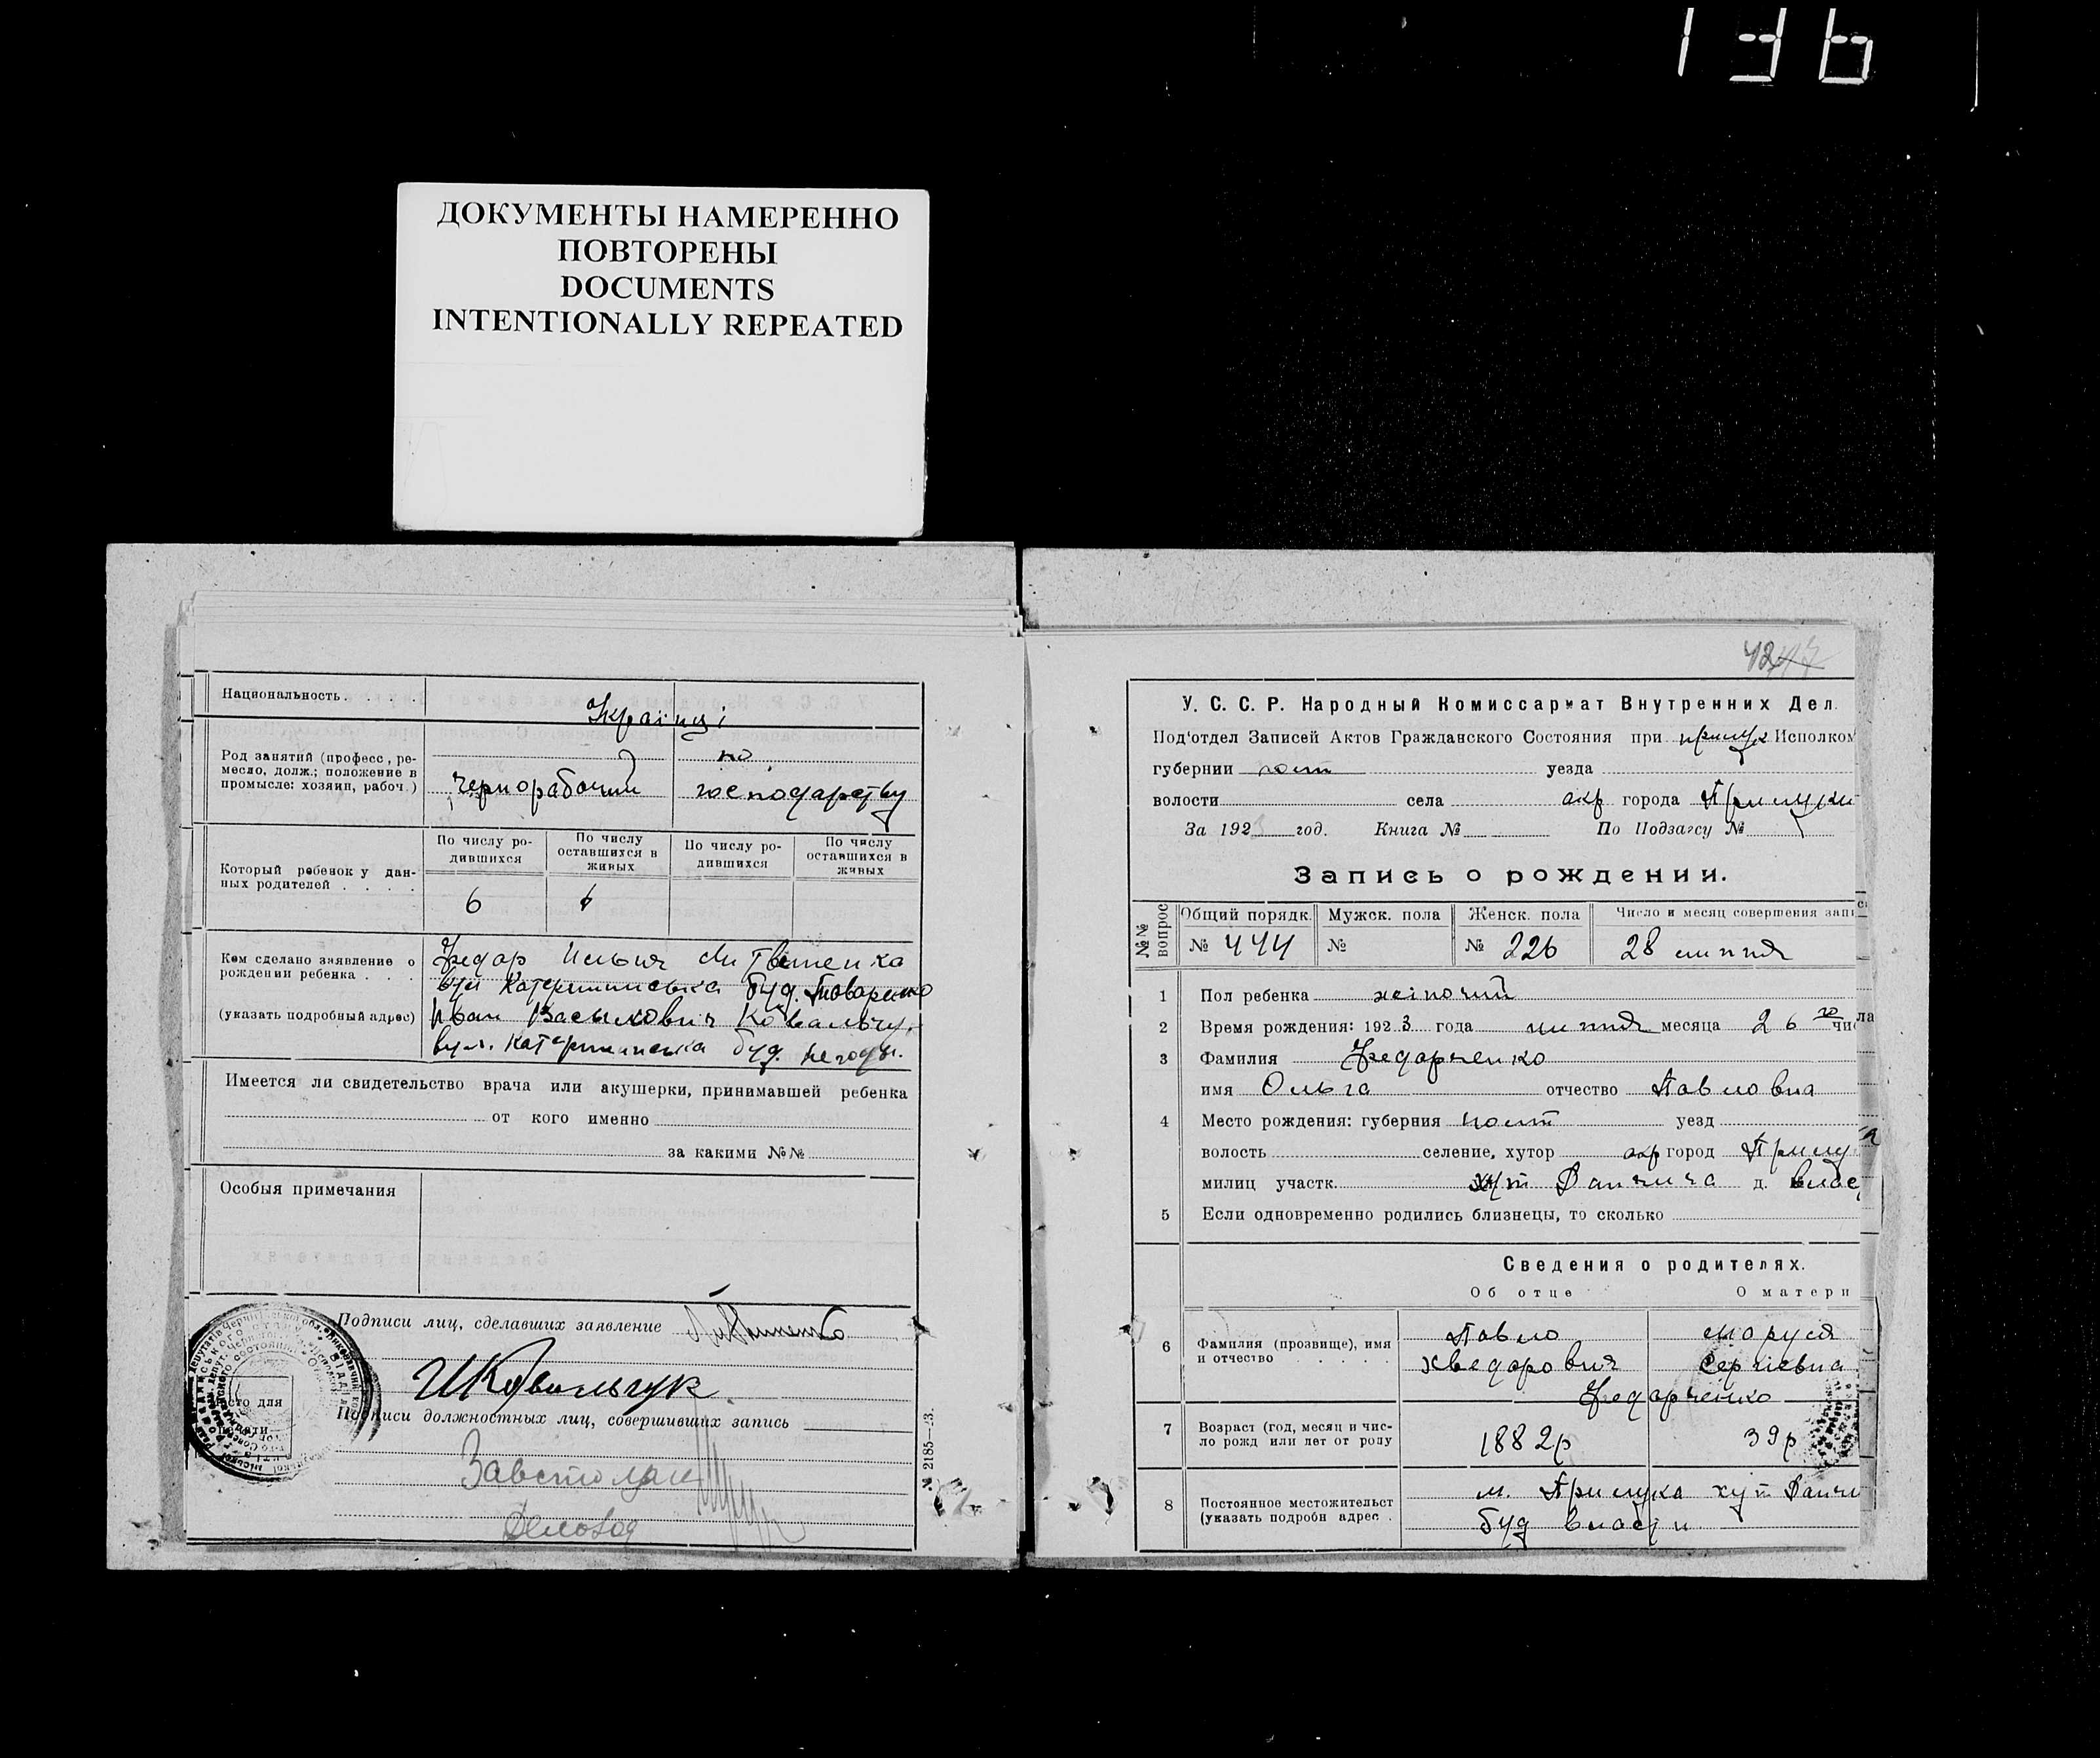 136
ДОКУМЕНТЫ НАМЕРЕННО
ПОВТОРЕНЫ
DOCUMENTS
INTENTIONALLY REPEATED
Национальность . . . .
Українці
Род занятий (професс, ре-
месло, долж.; положение в
промысле: хозяин, рабоч.)
Чернорабочий
по
господарству
Который ребенок у дан-
ных родителей . . . .
По числу ро-
дившихся
По числу
оставшихся в
живых
По числу ро-
дившихся
По числу
оставшихся в
живых
6
Кем сделано заявление о
рождении ребенка . . .
(указать подробный адрес)
Федор Ильич
вул Катерининська буд.
Иван Васильович Ковальчу
вул. Катерининська буд.
Имеется ли свидетельство врача или акушерки, принимавшей ребенка
от кого именно
за какими №№
Особыя примечания
Подписи лиц, сделавших заявление
ИКовальчук
Подписи должностных лиц, совершивших запись
Завстолом
Деловод
место для
печати
№ 2185—3.
42
У. С. С. Р. Народный Комиссариат Внутренних Дел.
Под'отдел Записей Актов Гражданского Состояния при Прилук Исполком
губернии Полт уезда
волости села окр города Прилуки
За 192 год. Книга № По Подзагсу №
Запись о рождении.
№№ вопрос
Общий порядк. Мужск. пола Женск. пола Число и месяц совершения запи
№ 444 № № 226 28 липня
1 Пол ребенка жіночий
2 Время рождения: 1923 года липня месяца 26 го чис
3 Фамилия Федарченко
имя Ольга отчество Павловна
4 Место рождения: губерния Полт уезд
волость селение, хутор окр город Прилу
милиц участк. хут д. влас
5 Если одновременно родились близнецы, то сколько
Сведения о родителях.
Об отце О матери
6 Фамилия (прозвище), имя
и отчество . . . . .
Павло
Хведорович
Маруся
Сергіевна
Федарченко
7 Возраст (год, месяц и чис-
ло рожд или лет от роду
1882р
39р
8 Постоянное местожительст
(указать подробн адрес .
м. Прилука хут
буд власти